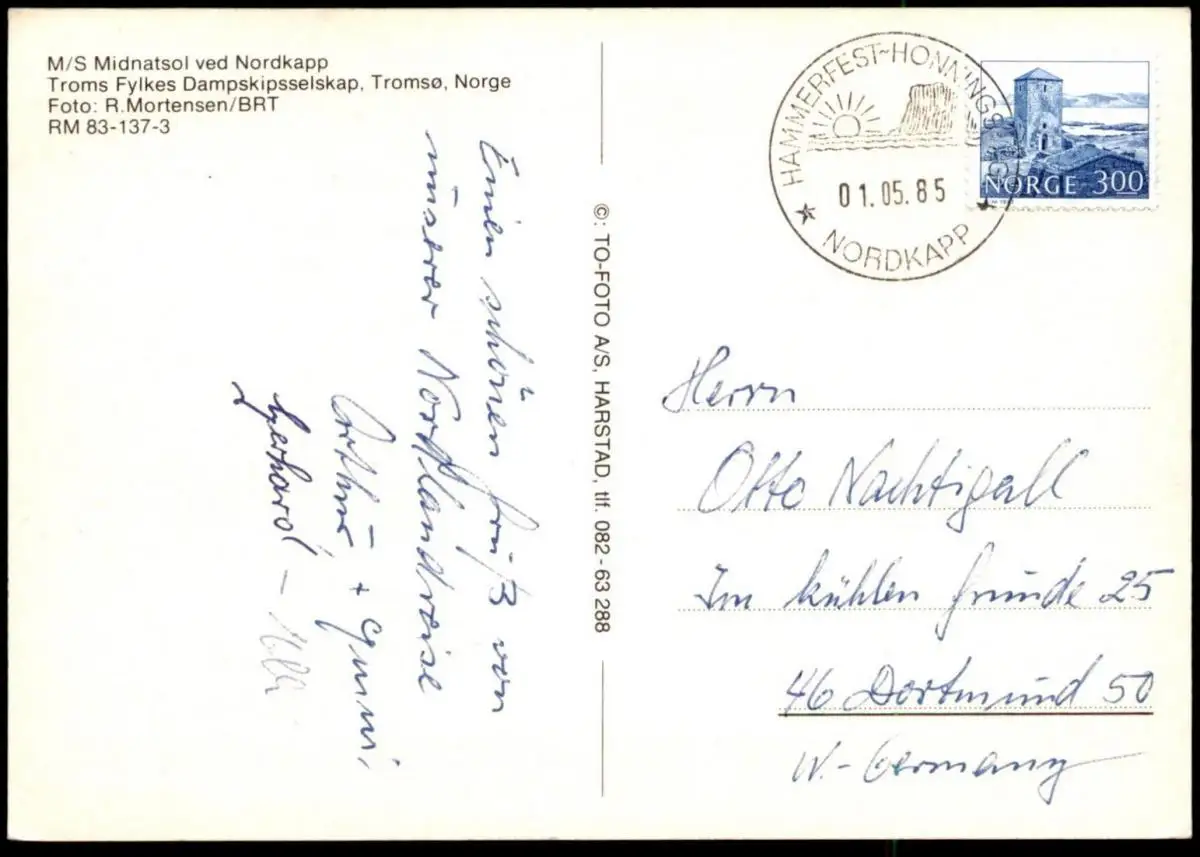 M/S Midnatsol ved Nordkapp
Troms Fylkes Dampskipsselskap, Tromsø, Norge
Foto: R.Mortensen/BRT
RM 83-137-3
Einen schönen Gruß von
unserer Nordlandreise
Arthur +
Gerhard –
©: TO-FOTO A/S, HARSTAD, tlf. 082-63 288
HAMMERFEST-HONNINGSVÅG
01.05.85
NORDKAPP
NORGE 300
Herrn
Otto Nachtigall
Im kühlen Grunde 25
46 Dortmund 50
W.-Germany